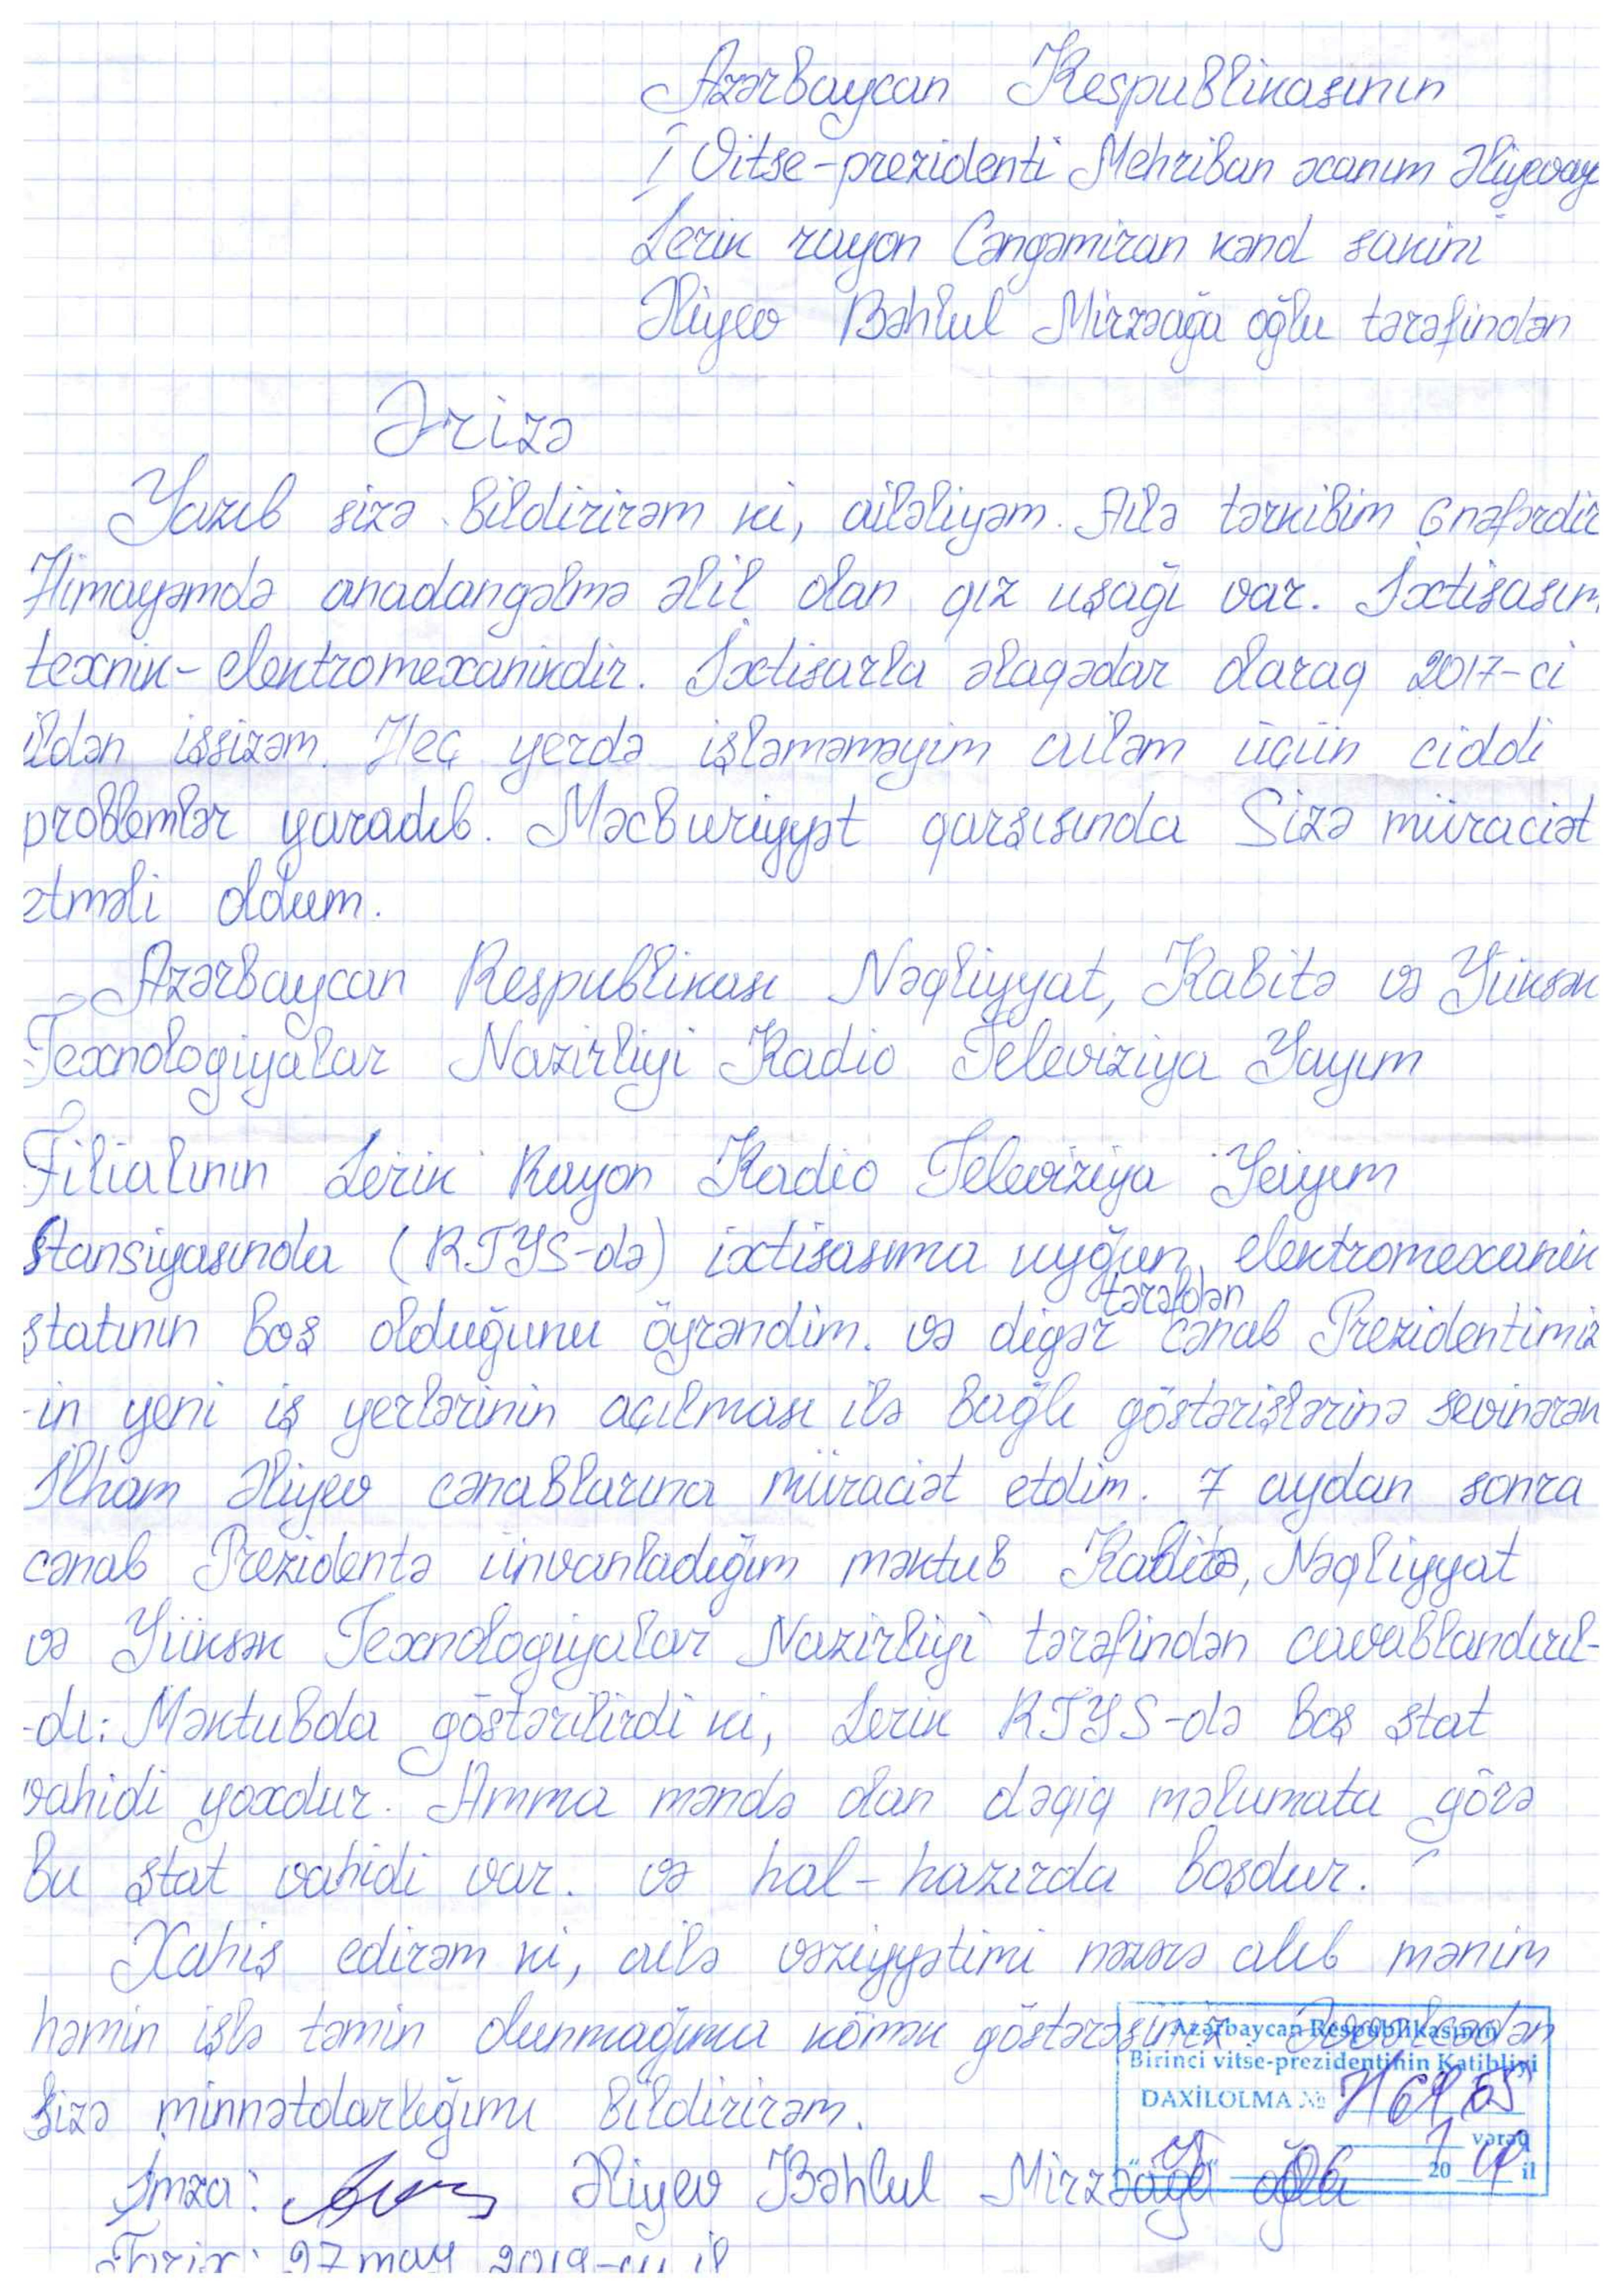 Azərbaycan Respublikasının
I Vitse-prezidenti Mehriban xanım Əliyevay
Lerik rayon Cəngəmiran kənd sakini
Əliyev Bəhlul Mirzəağa oğlu tərəfindən
Ərizə
Yazıb sizə bildirirəm ki, ailəliyəm. Ailə tərkibim 6 nəfərdir
Himayəmdə anadangəlmə əlil olan qız uşağı var. İxtisasım
texnik-elektromexanikdir. İxtisarla əlaqədar olaraq 2017-ci
ildən işsizəm. Heç yerdə işləməməyim ailəm üçün ciddi
problemlər yaradıb. Məcburiyyət qarşısında Sizə müraciət
etməli oldum.
Azərbaycan Respublikası Nəqliyyat, Rabitə və Yüksək
Texnologiyalar Nazirliyi Radio Televiziya Yayım
Filialının Lerik Rayon Radio Televiziya Yayım
Stansiyasında (RTYS-də) ixtisasıma uyğun elektromexanik
tərəfdən
ştatının boş olduğunu öyrəndim. və digər cənab Prezidentimiz
-in yeni iş yerlərinin açılması ilə bağlı göstərişlərinə sevinərək
İlham Əliyev cənablarına müraciət etdim. 7 aydan sonra
cənab Prezidentə ünvanladığım məktub Rabitə, Nəqliyyat
və Yüksək Texnologiyalar Nazirliyi tərəfindən cavablandırıl-
-dı: Məktubda göstərilirdi ki, Lerik RTYS-də boş ştat
vahidi yoxdur. Amma məndə olan dəqiq məlumata görə
bu ştat vahidi var. və hal-hazırda boşdur.
Xahiş edirəm ki, ailə vəziyyətimi nəzərə alıb mənim
həmin işlə təmin olunmağıma kömək göstərəsiniz. Əvvəlcədən
Azərbaycan Respublikasının
Birinci vitse-prezidentinin Katibliyi
DAXİLOLMA №
vərəq
20 il
Sizə minnətdarlığımı bildirirəm.
İmza: Əliyev Bəhlul Mirzəağa oğlu
Tarix: 27 may 2019-cu il